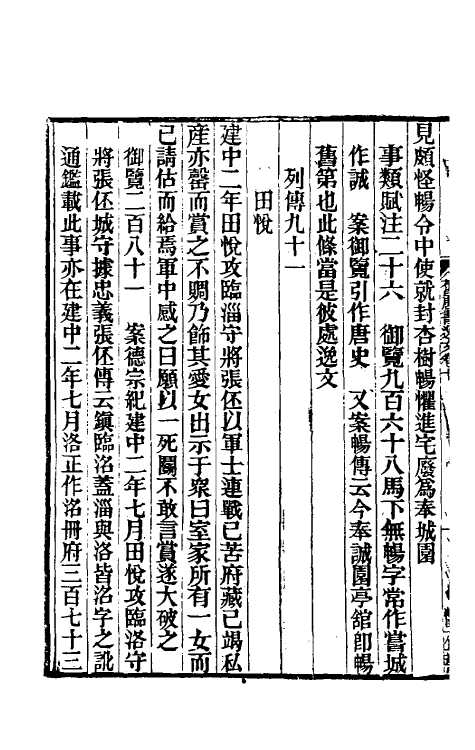 見頗怪暢令中使就封杏樹暢懼進宅廢爲奉城園
事類賦注二十六　御覽九百六十八馬下無暢字常作嘗城
作誠　案御覽引作唐史　又案暢傳云今奉誠園亭舘卽暢
舊第也此條當是彼處逸文
列傳九十一
田悅
建中二年田悅攻臨淄守將張伾以軍士連戰已苦府藏已竭私
産亦罄而賞之不賙乃飾其愛女出示于衆曰室家所有一女而
已請估而給焉軍中感之曰願以一死鬭不敢言賞遂大破之
御覽二百八十一　案德宗紀建中二年七月田悅攻臨洛守
將張伾城守據忠義張伾傳云鎭臨洺蓋淄與洛皆洺字之訛
通鑑載此事亦在建中二年七月洛正作洺冊府三百七十三